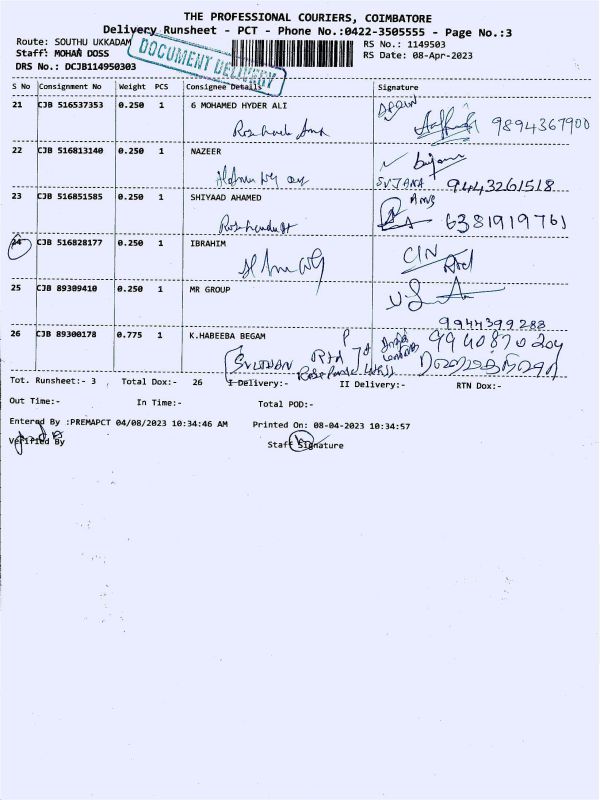 THE PROFESSIONAL COURIERS, COIMBATORE
Delivery Runsheet - PCT - Phone No.:0422-3505555 - Page No.:3
Route: SOUTHU UKKADAM
RS No.: 1149503
Staff: MOHAN DOSS
RS Date: 08-Apr-2023
DRS No.: DCJB114950303
DOCUMENT DELIVERY
S No Consignment No Weight PCS Consignee Details Signature
21 CJB 516537353 0.250 1 6 MOHAMED HYDER ALI
9894367900
22 CJB 516813140 0.250 1 NAZEER
SUJANA 9443261518
23 CJB 516851585 0.250 1 SHIYAAD AHAMED
6381919761
24 CJB 516828177 0.250 1 IBRAHIM
25 CJB 89309410 0.250 1 MR GROUP
9944399288
26 CJB 89300178 0.775 1 K.HABEEBA BEGAM
9940870204
Tot. Runsheet:- 3 Total Dox:- 26 I Delivery:- II Delivery:- RTN Dox:-
Out Time:- In Time:- Total POD:-
Entered By :PREMAPCT 04/08/2023 10:34:46 AM Printed On: 08-04-2023 10:34:57
Verified By Staff Signature